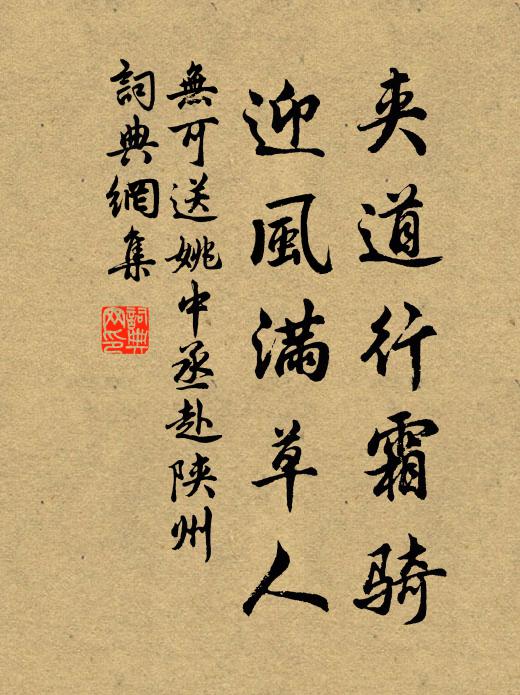 夹道行霜骑
迎風满草人
無可送姚中丞赴陕州
詞典網集
詞典网印